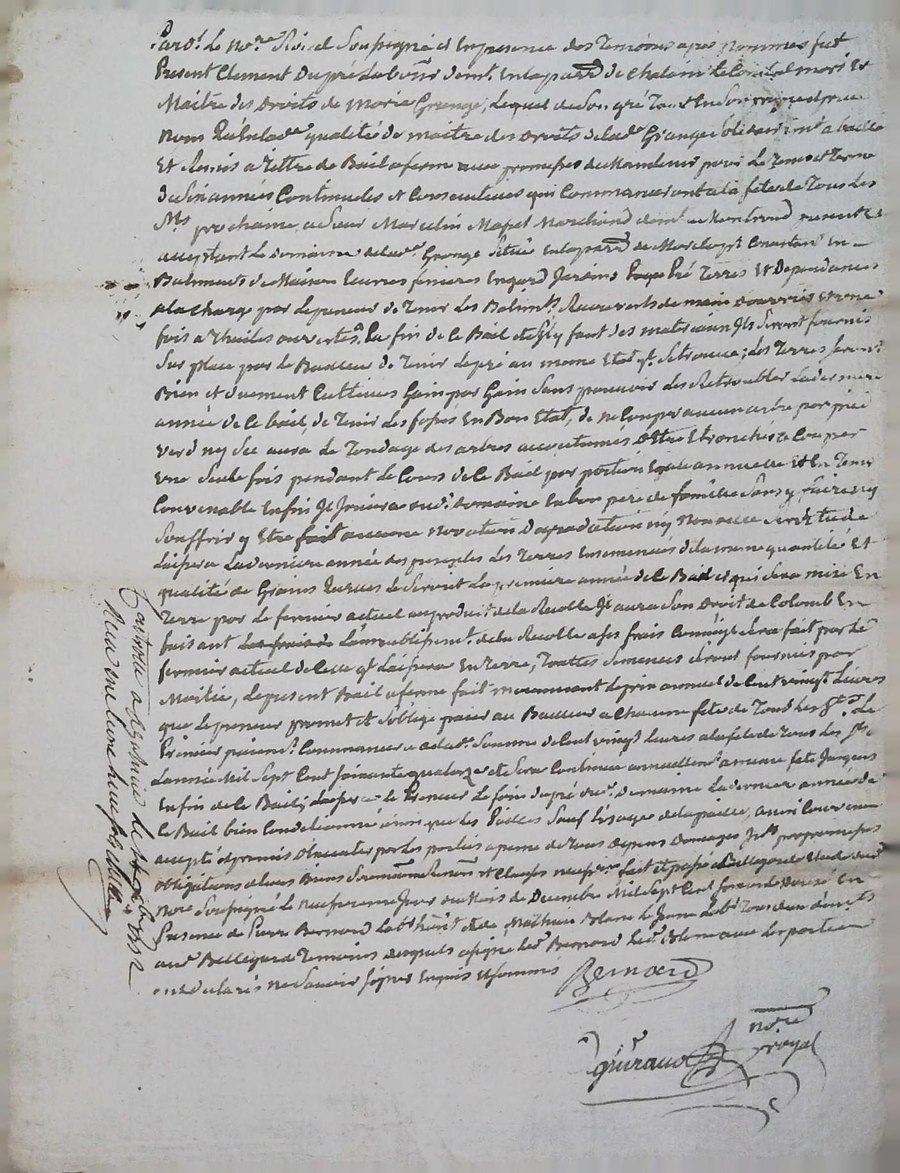 Pard.t Le No.re Roial Soussigné et En presence des Temoins apres nommés fut
Present Clement Dupré Lab.r dem.t En la par.sse de Chalain Le Comtal mari Et
Maitre des Droits de Marie Grange, Lequel de Son gré Tant En Son propre
nom qualité de maitre des Droits de lad.e Grange Solidairem.t a baillé
Et Remis a Tittre de Bail a ferme avec promesse de Maintenir pour Le Tems et Terme
de Six années Continuelles et Consecutives qui Commenceront a la fete de Tous Les
S.ts prochaine, a Sieur Marcelin Marchand dem.t a Montrond present Et
acceptant Le domaine de lad.e Grange Situé En la par.sse de Consistant En
Batiments de Maison Ecuries fenieres Jardins Pré Terres Et Dependances
a la Charge par Le preneur de Tenir Les Batim.ts Recouverts de main d'ouvriers Et une
fois a Thuiles ouvertes a La fin de Ce Bail et S'il y faut des materiaux Ils Seront fournis
Sur place par Le Bailleur de Tenir Le pré au meme Etat q.l Se trouve; Les Terres Seront
Bien et duement Cultivées Gain par Gain Sans pouvoir Les Retroubler La derniere
année de Ce bail, de Tenir Les fossés En Bon Etat, de ne Couper aucun arbre par pied
verd ny Sec aura Le Tondage des arbres accoutumés d'Etre Etronchés a Couper
une Seule fois pendant Le Cours de Ce Bail par portion Egale annuelle Et En Tems
Convenable Enfin Il Jouira dud.t domaine En bon pere de famille Sans y faire ny
Souffrir y Etre fait aucune Novation Degradation ny Nouvelle Servitude
Laissera La derniere année des presentes Les Terres Ensemencées de la meme quantité Et
qualité de Grains Recues Le Seront La premiere année de Ce Bail et qui Sera mise En
Terre par Le fermier actuel au produit de la Recolte Il aura Son Droit de Colomb En
faisant L'ameublissem.t de la Recolte a Ses frais Comme il Sera fait par Le
fermier actuel de Celle q.l Laissera En Terre, Touttes Semences Seront fournies par
Moitié, Le present Bail a ferme fait moyennant Le prix annuel de Cent vingt Livres
que Le preneur promet et S'oblige paier au Bailleur a Chacune fete de Tous Les S.ts Le
Premier paiem.t Commencera de lad.e Somme de Cent vingt Livres a La fete de Tous Les S.ts
L'année Mil Sept Cent Soixante quatorze et Sera Continué annuellem.t a meme fete Jusques
En fin de Ce Bail; Laissera Le Preneur Le foin du pré dud.t domaine La derniere année de
Ce Bail bien Conditionné ainsi que Les Pailles Sauf L'usage de la paille, ainsi Convenu
accepté et promis Executer par Les parties a peine de Tous Depens Domages Jnt.ts
obligations de Leurs Biens Soumis.ons Renon.ons et Clauses fait et passé a Bellegarde Etude dud.t
No.re Soussigné Le neufvieme Jour du Mois de Decembre Mil Sept Cent Soixante Douze En
Presence de Pierre Bernard et de Mathieu Le Jeune Lab.r Tous deux dem.ts
aud.t Bellegarde Temoins desquels a Signé Led.t Bernard Led.t avec Les parties
ont declaré ne Savoir Signer Enquis et Sommés
Bernard
Guiraud No.re
royal
Controllé a Le 1772
Recu une Livre neuf Sols